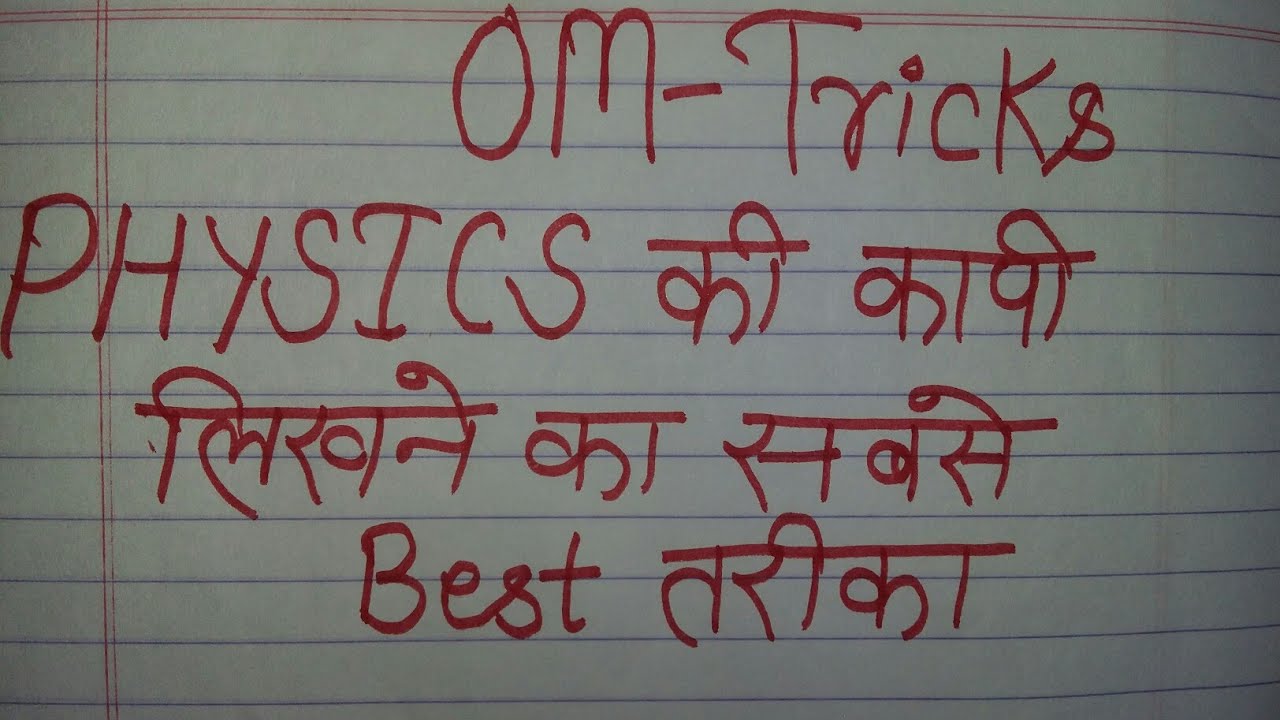 OM-Tricks
PHYSICS की कापी
लिखने का सबसे
Best तरीका